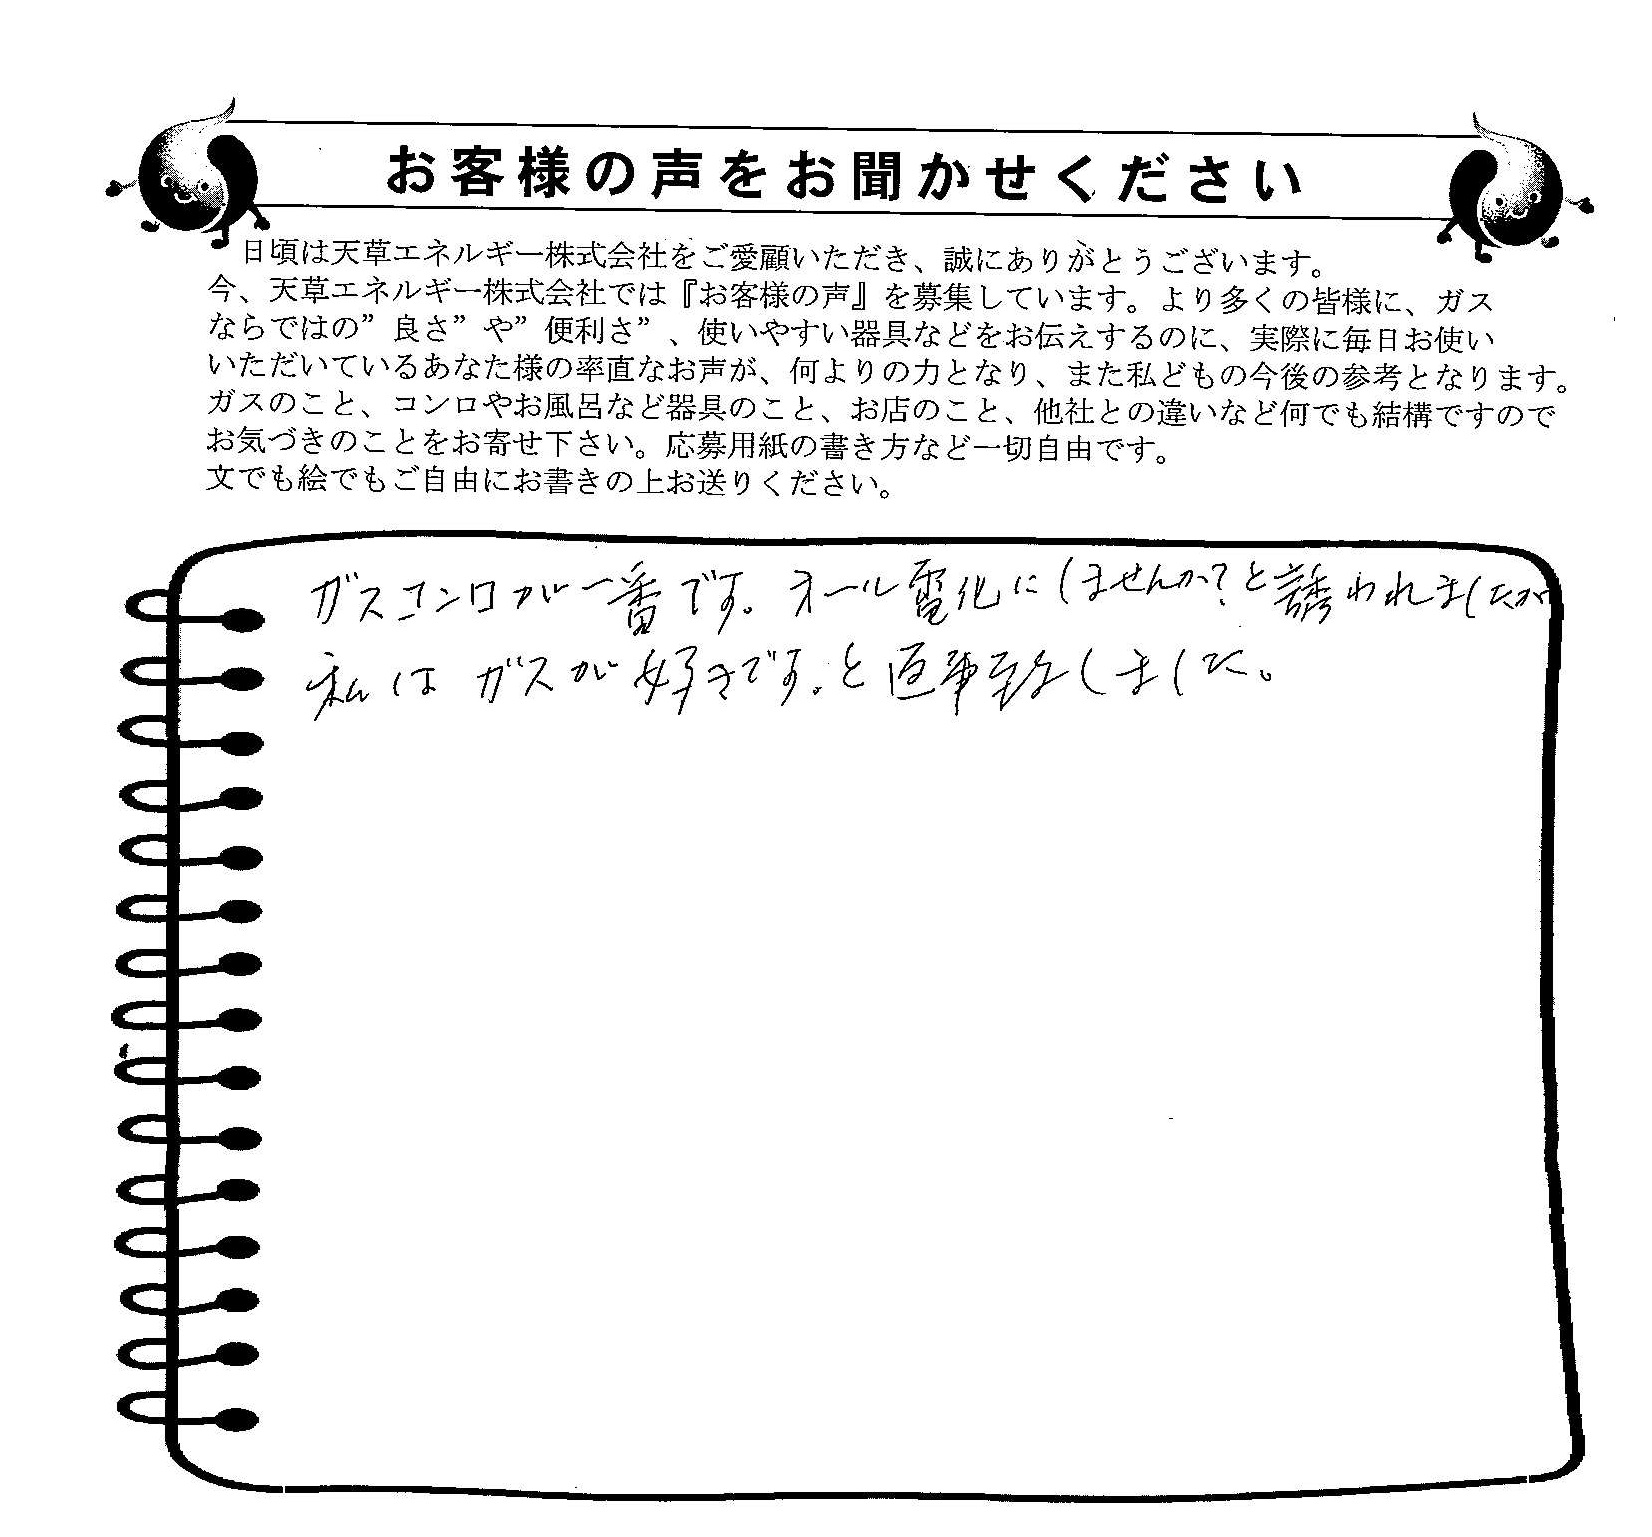 お客様の声をお聞かせください
日頃は天草エネルギー株式会社をご愛顧いただき、誠にありがとうございます。
今、天草エネルギー株式会社では『お客様の声』を募集しています。より多くの皆様に、ガス
ならではの”良さ”や”便利さ”、使いやすい器具などをお伝えするのに、実際に毎日お使い
いただいているあなた様の率直なお声が、何よりの力となり、また私どもの今後の参考となります。
ガスのこと、コンロやお風呂など器具のこと、お店のこと、他社との違いなど何でも結構ですので
お気づきのことをお寄せ下さい。応募用紙の書き方など一切自由です。
文でも絵でもご自由にお書きの上お送りください。
ガスコンロが一番です。オール電化にしませんか?と誘われましたが
私はガスが好きです。と返事致しました。